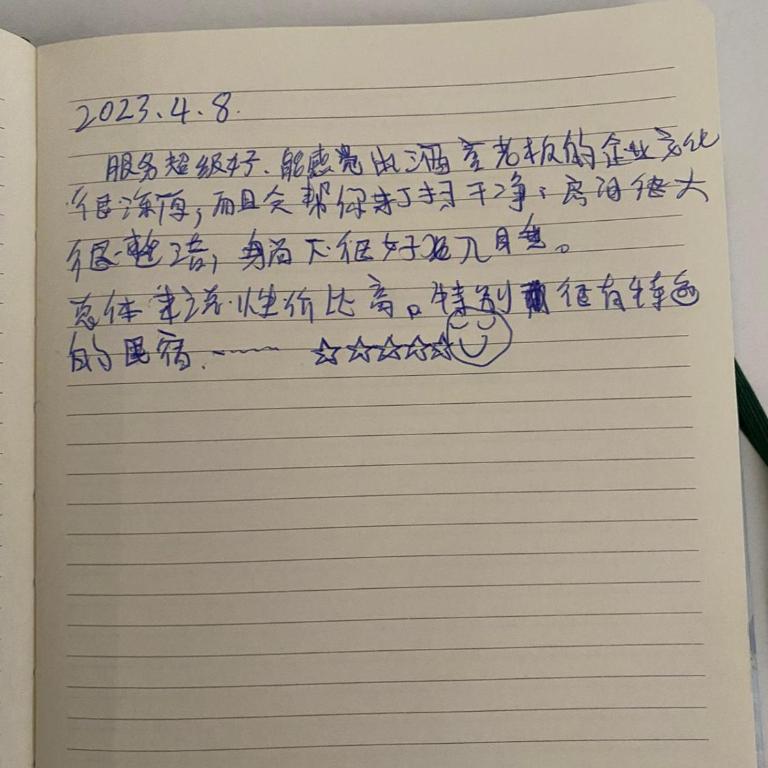 2023.4.8.
服务超级好、能感觉出酒店老板的企业文化
很深厚,而且会帮你来打扫干净;房间很大
很整洁,很好
总体来说.性价比高。特别很有特色
的民宿.…… ☆☆☆☆☆